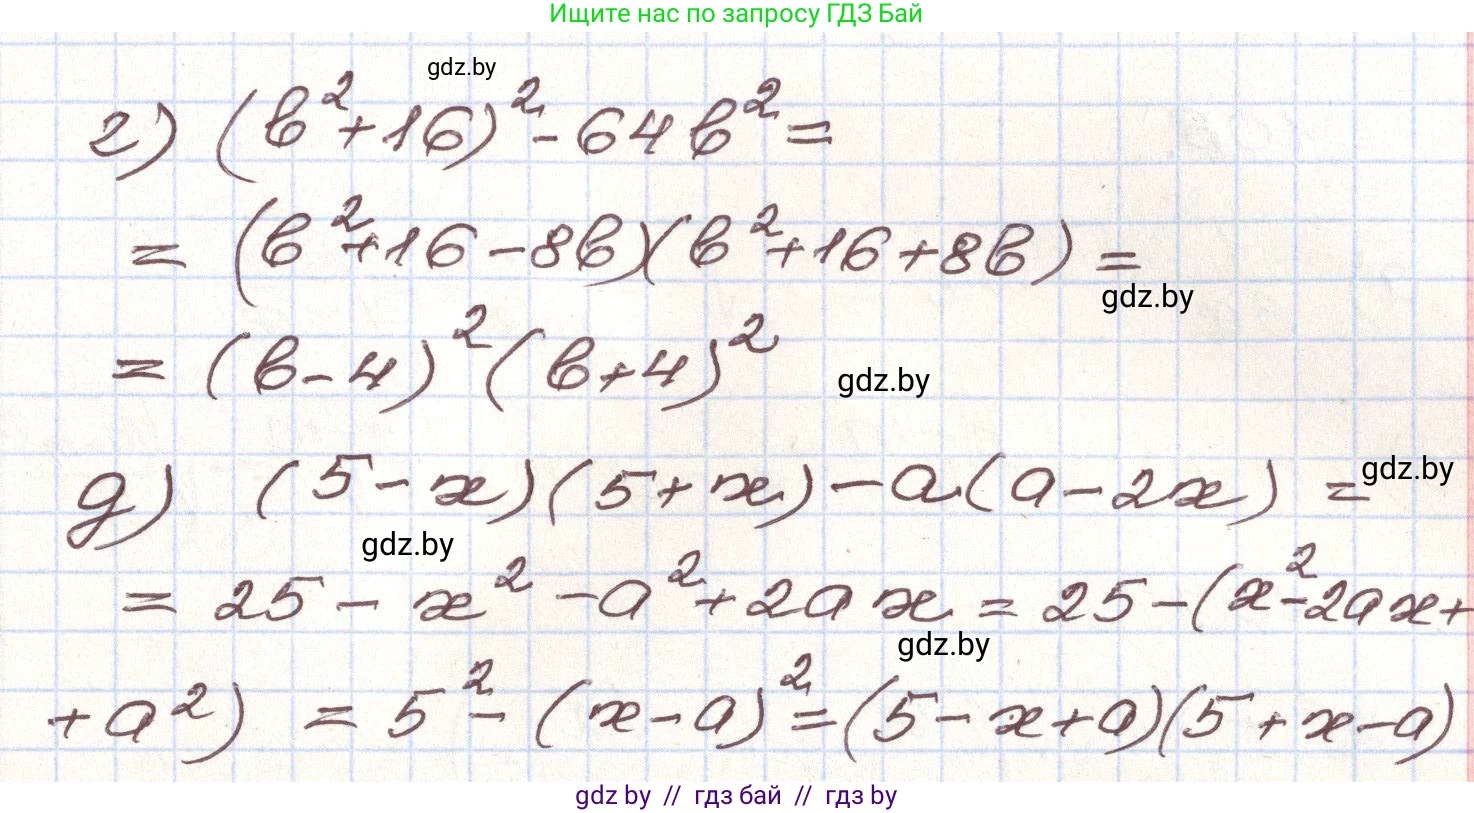 Ищите нас по запросу ГДЗ Бай
gdz.by
г) (b²+16)²-64b²=
= (b²+16-8b)(b²+16+8b) =
gdz.by
= (b-4)²(b+4)²
gdz.by
д) (5-x)(5+x)-a(a-2x) =
gdz.by
gdz.by
= 25-x²-a²+2ax = 25-(x²-2ax+
gdz.by
+a²) = 5²-(x-a)²=(5-x+a)(5+x-a)
gdz by // гдз бай // гдз by